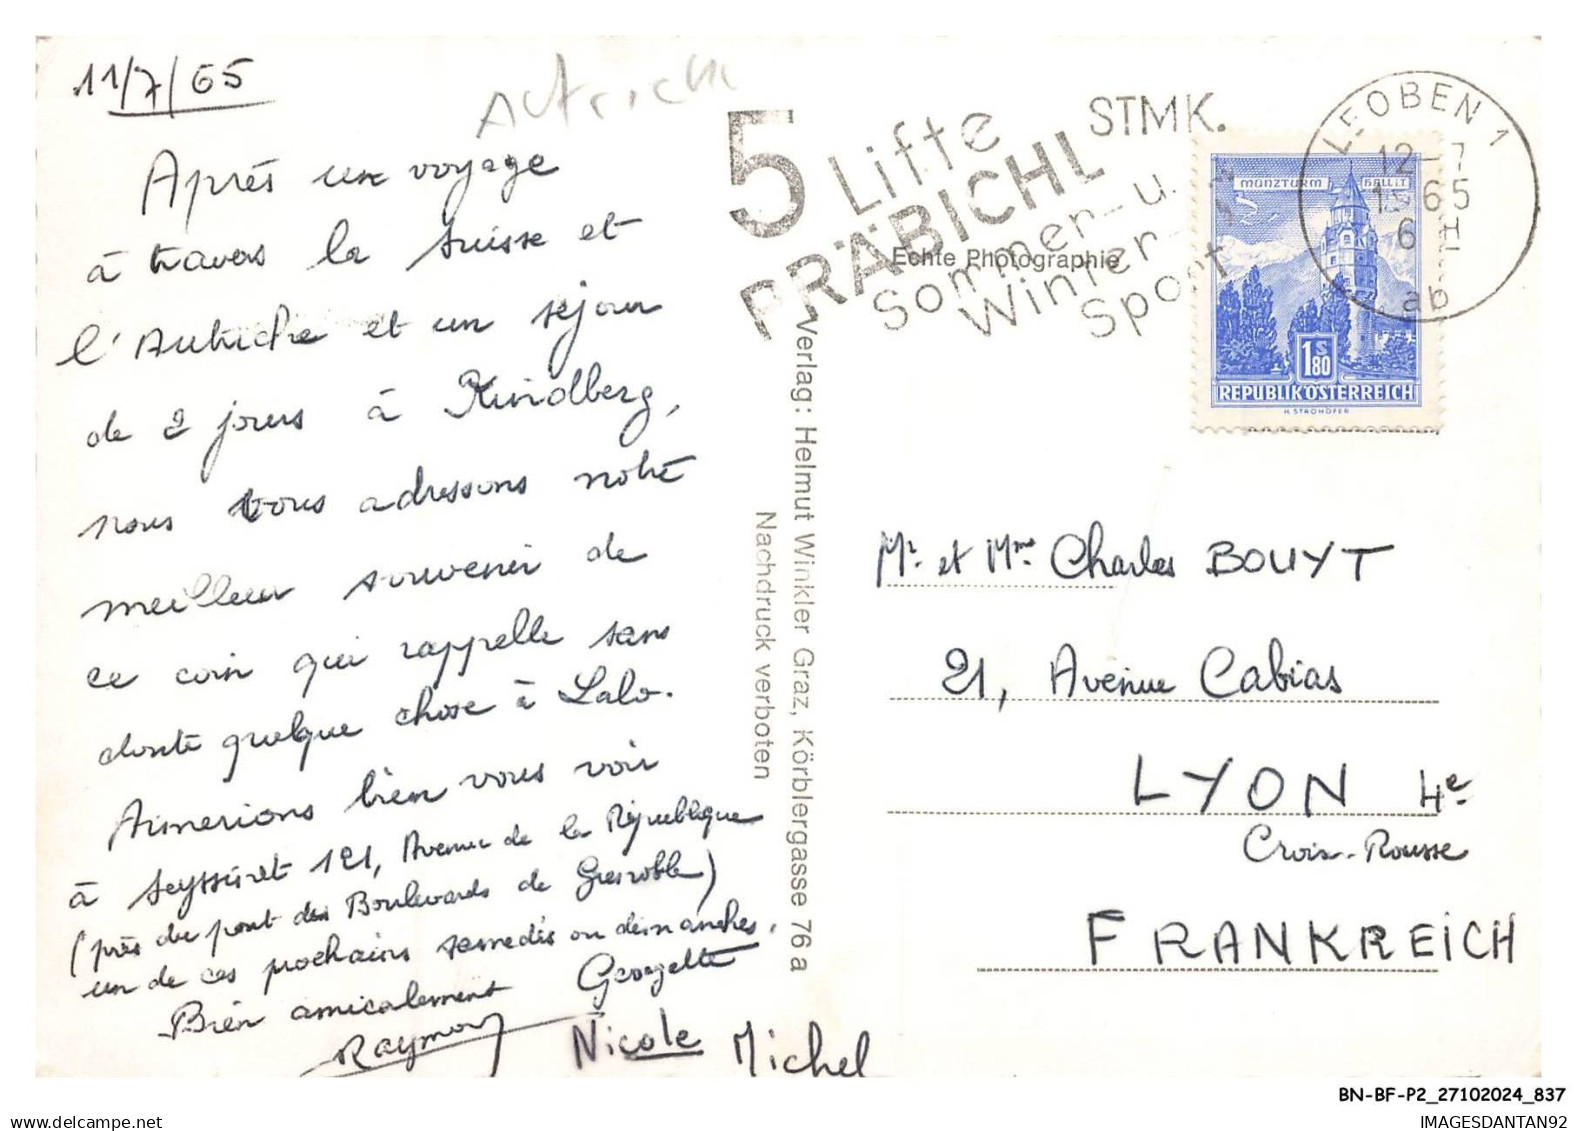 11/7/65
Autriche
Après un voyage
à travers la Suisse et
l'Autriche et un séjour
de 2 jours à Kindberg,
nous vous adressons notre
meilleur souvenir de
ce coin qui rappelle sans
doute quelque chose à Lalo.
Aimerions bien vous voir
à Seyssinet 121, Avenue de la République
(près du pont des Boulevards de Grenoble)
un de ces prochains samedis ou dimanches.
Bien amicalement Georgette
Raymond Nicole Michel
5 Lifte
PRÄBICHL
STMK.
Sommer- u.
Winter-
Sport
LEOBEN 1
12-7
65
6
ab
MÜNZTURM HALL I T
1 S 80
REPUBLIK ÖSTERREICH
H. STROHOFER
Echte Photographie
Verlag: Helmut Winkler Graz, Körblergasse 76 a
Nachdruck verboten
Mr et Mme Charles BOUYT
21, Avenue Cabias
LYON 4e
Croix-Rousse
FRANKREICH
BN-BF-P2_27102024_837
IMAGESDANTAN92